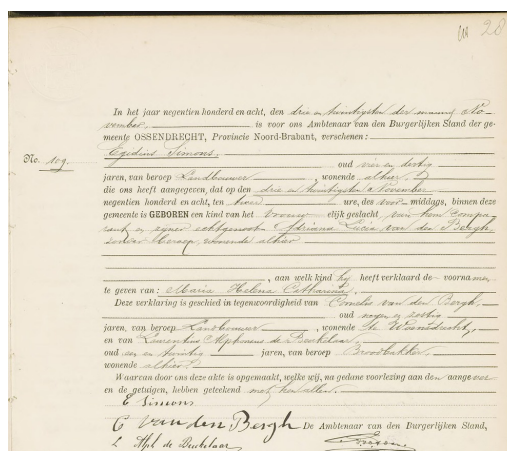 28
In het jaar negentien honderd en acht, den drie en twintigsten der maand No-
vember, is voor ons Ambtenaar van den Burgerlijken Stand der ge-
meente OSSENDRECHT, Provincie Noord-Brabant, verschenen:
Egidius Simons,
No. 109. oud vier en dertig
jaren, van beroep Landbouwer, wonende alhier
die ons heeft aangegeven, dat op den drie en twintigsten November
negentien honderd en acht, ten twee ure, des voor middags, binnen deze
gemeente is GEBOREN een kind van het vrouw elijk geslacht, van hem compa-
rant en zijner echtgenoote Adriana Lucia van den Bergh,
zonder beroep, wonende alhier
, aan welk kind hij heeft verklaard de voorna men
te geven van: Maria Helena Catharina.
Deze verklaring is geschied in tegenwoordigheid van Cornelis van den Bergh,
oud negen en zestig
jaren, van beroep Landbouwer, wonende te Woensdrecht,
en van Laurentius Alphonsus de Beukelaar,
oud een en twintig jaren, van beroep Broodbakker,
wonende alhier
Waarvan door ons deze akte is opgemaakt, welke wij, na gedane voorlezing aan den aangever
en de getuigen, hebben geteekend met hen allen.
E Simons
C van den Bergh De Ambtenaar van den Burgerlijken Stand,
L Alph de Beukelaar